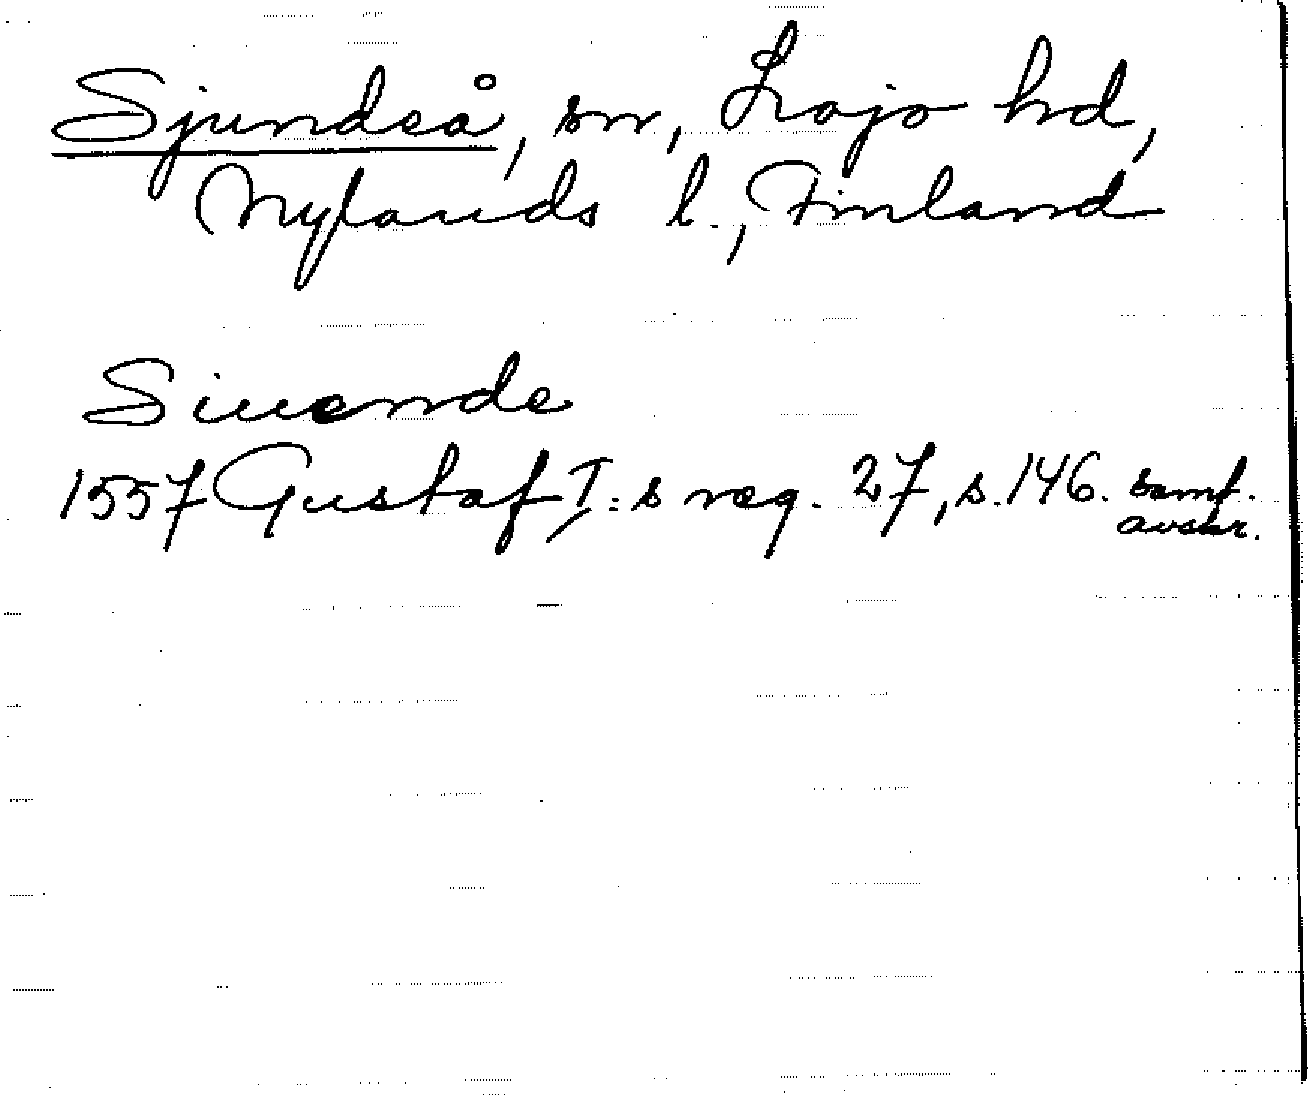 Sjundeå, sn, Lojo hd,
Nylands l., Finland
Siuende
1557 Gustaf I:s reg. 27, s. 146. samt.
avskr.